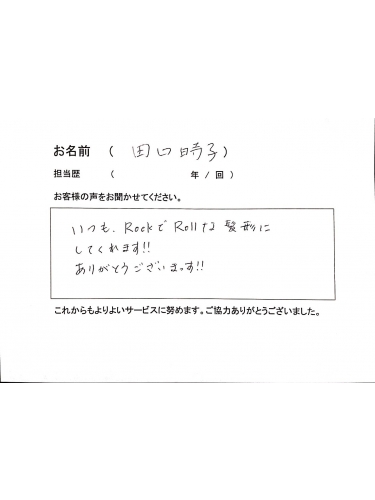 お名前 ( 田口時子 )
担当歴 ( 年 / 回 )
お客様の声をお聞かせてください。
いつも、RockでRollな髪形に
してくれます!!
ありがとうございます!!
これからもよりよいサービスに努めます。ご協力ありがとうございました。